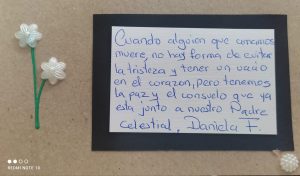 Cuando alguien que conocemos
muere, no hay forma de evitar
la tristeza y tener un vacío
en el corazon, pero tenemos
la paz y el consuelo que ya
esta junto a nuestro Padre
Celestial, Daniela F.
REDMI NOTE 10